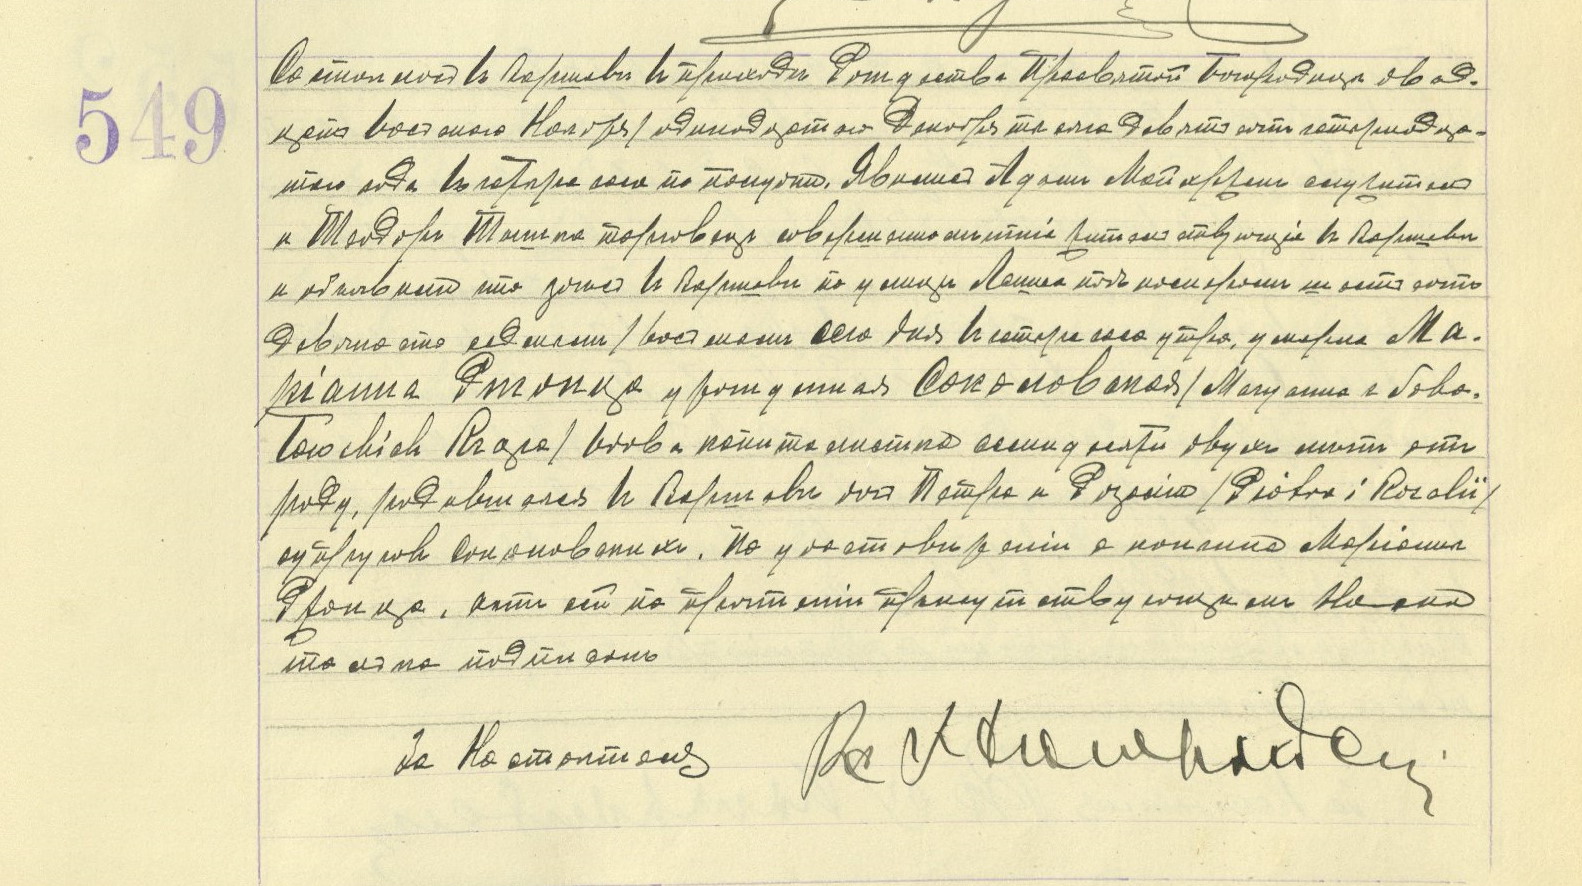 549
Состоялось въ Варшавѣ въ приходѣ Рождества Пресвятой Богородицы двад-
цать восьмого Ноября/ одиннадцатого Декабря тысяча девятьсотъ четырнадца-
того года въ четыре часа по полудни. Явились Адамъ служитель
и Теодоръ торговецъ совершеннолѣтніе жительствующіе въ Варшавѣ
и объявили что здѣсь въ Варшавѣ по улицѣ Лешно подъ номеромъ шестьсотъ
девяносто седьмымъ/восьмымъ сего дня въ четыре часа утра, умерла Ма-
ріанна Рж урожденная Соколовская/ Maryanna z Soko-
łowskich вдова капиталистка семидесяти двухъ лѣтъ отъ
роду, родившаяся въ Варшавѣ дочь Петра и Розаліи /Piotra i Rozalii/
супруговъ Соколовскихъ. По удостовѣреніи о кончинѣ Маріанны
актъ сей по прочтеніи присутствующимъ Нами
только подписанъ
За Настоятеля